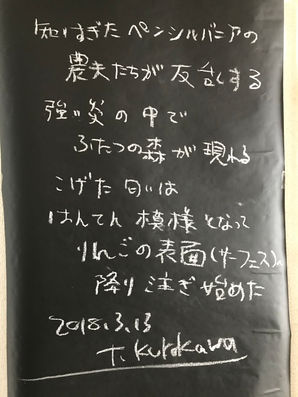 知りすぎたペンシルバニアの
農夫たちが反乱する
強い炎の中で
ふたつの森が現れる
こげた匂いは
はんてん模様となって
りんごの表面(サーフェス)に
降り注ぎ始めた
2018.3.13
T. Kurokawa